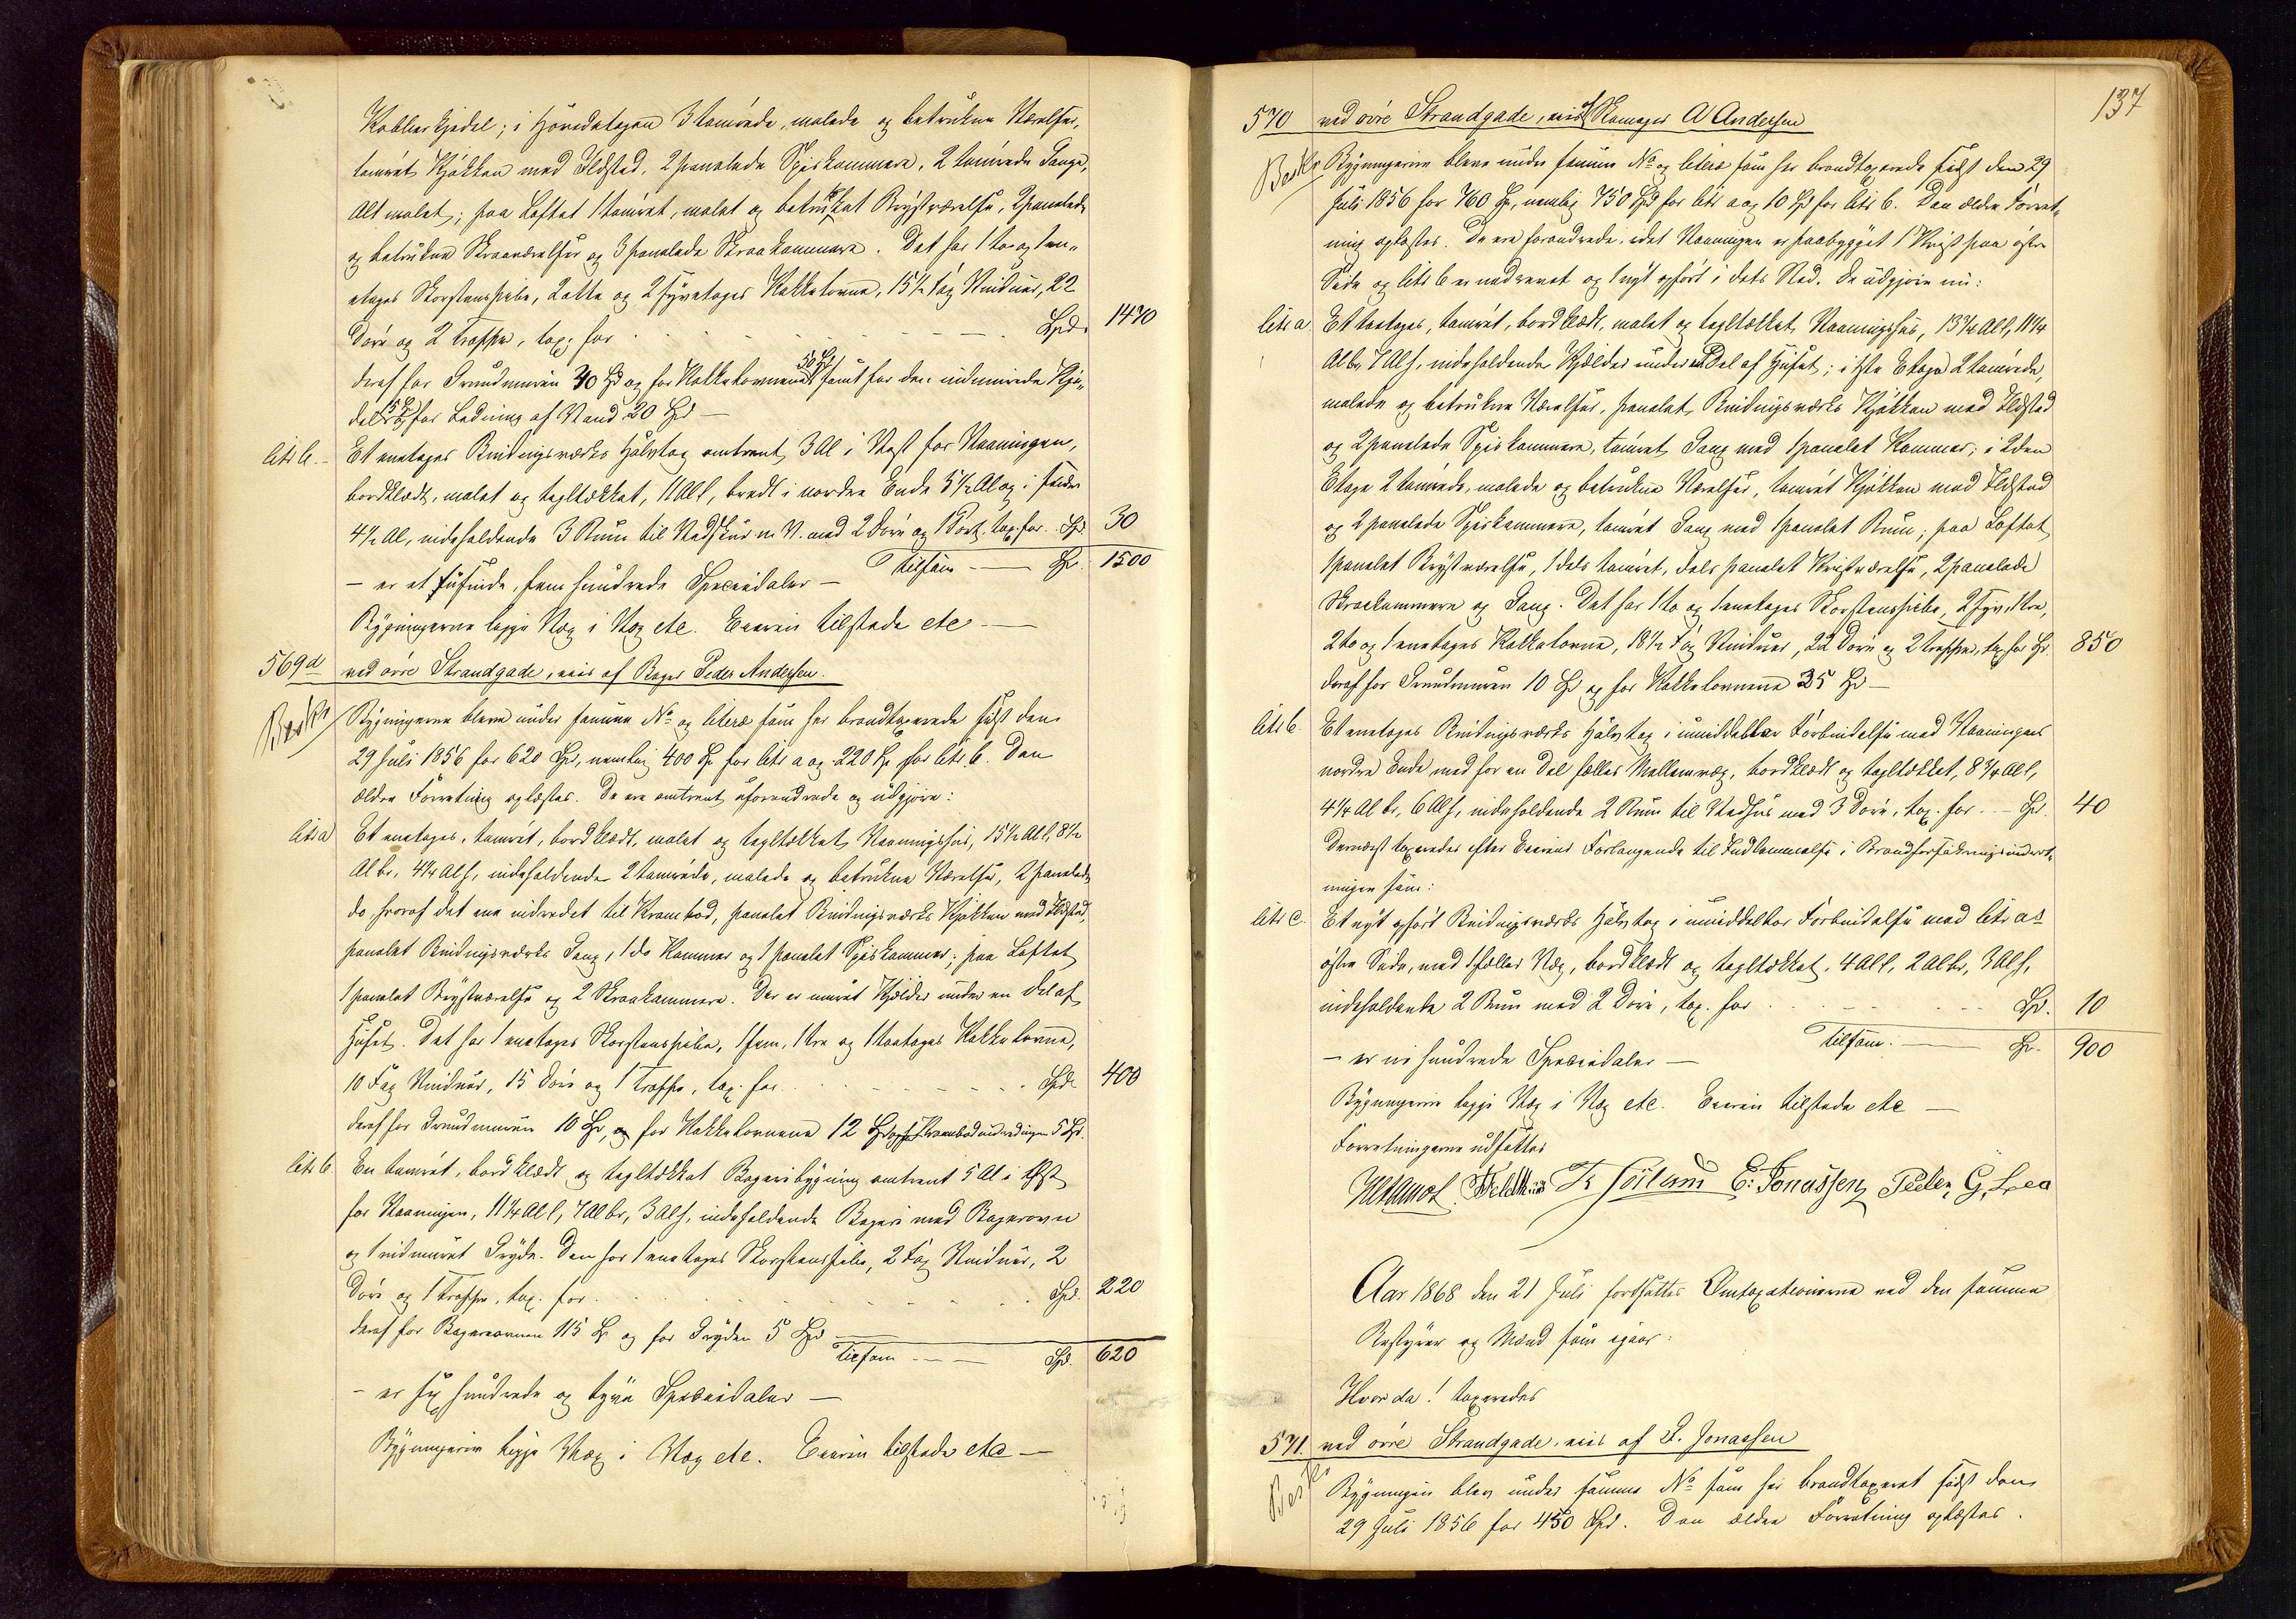 Kobberkjedel; i Hovedetagen 3 tømrede, malede og betrukne Værelser,
tømret Kjøkken med Ildsted, 2 panelede Spiskammere, 2 tømrede Gange,
Alt malet; paa Loftet 1 tømret, malet og betrukket Kvistværelse, 2 panelede
og betrukne Skraaværelser og 3 panelede Skraakammere. Det har 1 to og 1 en
etages Skorstenspibe, 2 otte og 2 fyreetages Kakkelovne, 15½ Fag Vinduer, 22
Døre og 2 Trapper, tax: for Spd. 1470
deraf for Grundmuren 70 Spd og for Kakkelovnene 50 Spd samt for den indmurede Kje-
del 15 Spd, for Ledning af Vand 20 Spd –
litr b. – Et enetages Bindingsværks Halvtag omtrent 3 Al i Vest for Vaaningen,
bordklædt, malet og tagltækket, 11 Al l, bredt i nordre Ende 5½ Al og i søndre
4½ Al, indeholdende 3 Rum til Vedskur m. V. med 2 Døre og 1 Port tax. for Spd. 30
Tilsam – Sp. 1500
– er et tusinde, fem hundrede Speciedaler –
Bygningerne ligge Væg i Væg etc. Eieren tilstede etc –
569d ved øvre Strandgade, eies af Bager Peder Andersen.
Bygningerne bleve under samme No og literæ som her brandtaxerede sidst den
29 Juli 1856 for 620 Spd, nemlig 400 Sp for litr a og 220 Sp for litr. b. Den
ældre Forretning oplæstes. De ere omtrent uforandrede og udgjøre:
litr a Et enetages, tømret, bordklædt, malet og tagltækket Vaaningshus, 15½ Al l, 8½
Al br, 4¼ Al h, indeholdende 2 tømrede, malede og betrukne Værelser, 2 panelede
do hvoraf det ene indredet til Krambod, panelet Bindingsværks Kjøkken med Ildsted,
panelet Bindingsværks Gang, 1 do Kammer og 1 panelet Spiskammer; paa Loftet
1 panelet Kvistværelse og 2 Skraakammere. Der er muret Kjelder under en Del af
Huset. Det har 1 enetages Skorstenspibe, 1 fem, 1 tre og 1 toetages Kakkelovne,
10 Fag Vinduer, 15 Døre og 1 Trappe, tax. for Spd. 400
deraf for Grundmuren 10 Sp, og for Kakkelovnene 12 Spd og for Krambodindredningen 5 Spd.
litr b En tømret, bordklædt og tagltækket Bageribygning omtrent 5 Al i Øst
for Vaaningen, 11¼ Al l, 7 Al br, 3 Al h, indeholdende Bageri med Bagerovn
og 1 indmuret Gryde. Den har 1 enetages Skorstenspibe, 2 Fag Vinduer, 2
Døre og 1 Trappe, tax. for Spd. 220
deraf for Bagerovnen 115 Sp og for Gryden 5 Spd –
Tilsam – Spd. 620
– er sex hundrede og tyve Speciedaler –
Bygningerne ligge Væg i Væg etc. Eieren tilstede etc –
137
570 ved øvre Strandgade, eies af Skomager A Andersen
Bygningerne bleve under samme No og literæ som her brandtaxerede sidst den 29
Juli 1856 for 760 Sp, nemlig 750 Spd for litr a og 10 Spd for litr b. Den ældre Forret-
ning oplæstes. De ere forandrede, idet Vaaningen er paabygget 1 Kvist paa østre
Side og litr b er nedrevet og 1 nyt opført i dets Sted. De udgjøre nu:
litr a Et toetages, tømret, bordklædt, malet og tagltækket Vaaningshus, 13¾ Al l, 11¼
Al br, 7 Al h, indeholdende Kjelder under en Del af Huset; i 1ste Etage 2 tømrede,
malede og betrukne Værelser, panelet Bindingsværks Kjøkken med Ildsted
og 2 panelede Spiskammere, tømret Gang med 1 panelet Kammer; i 2den
Etage 2 tømrede, malede og betrukne Værelser, tømret Kjøkken med Ildsted
og 2 panelede Spiskammere, tømret Gang med 1 panelet Rum; paa Loftet
1 panelet Kvistværelse, 1 dels tømret, dels panelet Kvistværelse, 2 panelede
Skraakammere og Gang. Det har 1 to og 1 enetages Skorstenspibe, 2 fyre, 1 tre,
2 to og 1 enetages Kakkelovne, 18½ Fag Vinduer, 22 Døre og 2 Trapper, tax for Sp. 850
deraf for Grundmuren 10 Spd og for Kakkelovnene 35 Spd –
litr b. Et enetages Bindingsværks Halvtag i umiddelbar Forbindelse med Vaaningens
nordre Ende med for en Del fælles Mellemvæg, bordklædt og tagltækket, 8¾ Al l,
4¼ Al br, 6 Al h, indeholdende 2 Rum til Vedhus med 3 Døre, tax. for – Spd. 40
Dernæst taxeredes efter Eierens Forlangende til Indlemmelse i Brandforsikringsindret-
ningen som:
litr c. Et nyt opført Bindingsværks Halvtag i umiddelbar Forbindelse med litr as
østre Side, med 1 fælles Væg, bordklædt og tagltækket, 4 Al l, 2 Al br, 3 Al h,
indeholdende 2 Rum med 2 Døre, tax. for Spd. 10
Tilsam. – Sp. 900
– er ni hundrede Speciedaler –
Bygningerne ligge Væg i Væg etc. Eieren tilstede etc –
Forretningerne udsættes
E. Jonassen Peder G. Lea
Aar 1868 den 21 Juli fortsattes Omtaxationerne ved den samme
Bestyrer og Mænd som igaar:
Hvor da! taxeredes
571. ved øvre Strandgade, eies af S. Jonassen
Bygningen blev under samme No som her brandtaxeret sidst den
29 Juli 1856 for 450 Spd. Den ældre Forretning oplæstes.